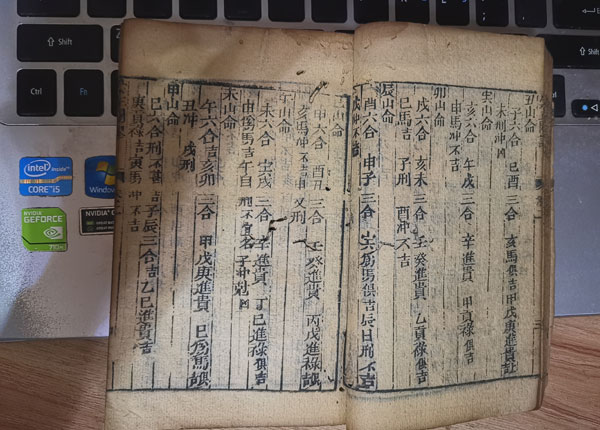 丑山命
子六合 巳酉三合 亥馬俱吉甲戊庚進貴
未刑冲凶
寅山命
六合 午戌三合 辛進貴 甲貢祿俱吉
申馬冲不吉
卯山命
戌六合 亥未三合 壬癸進貴 乙貢祿俱吉
巳馬吉 子刑 酉冲不吉
辰山命
酉六合 申子三合 爲馬俱吉辰日刑不吉
戌冲不吉
山命
申六合 酉丑三合 壬癸進貴 丙戊進祿
亥馬冲不吉申又刑
午山命
未六合 寅戌三合 辛進貴 丁巳進祿俱吉
申爲馬吉 午自刑不宜 子冲剋凶
未山命
午六合吉亥卯三合 甲戊庚進貴 巳爲馬
丑冲 戌刑
申山命
巳六合刑不 子辰三合吉乙巳進貴吉
庚貢祿吉寅馬冲不吉
Shift
Ctrl
Fn
Shift
intel inside
CORE i5
Windows
NVIDIA
GEFORCE
NVIDIA